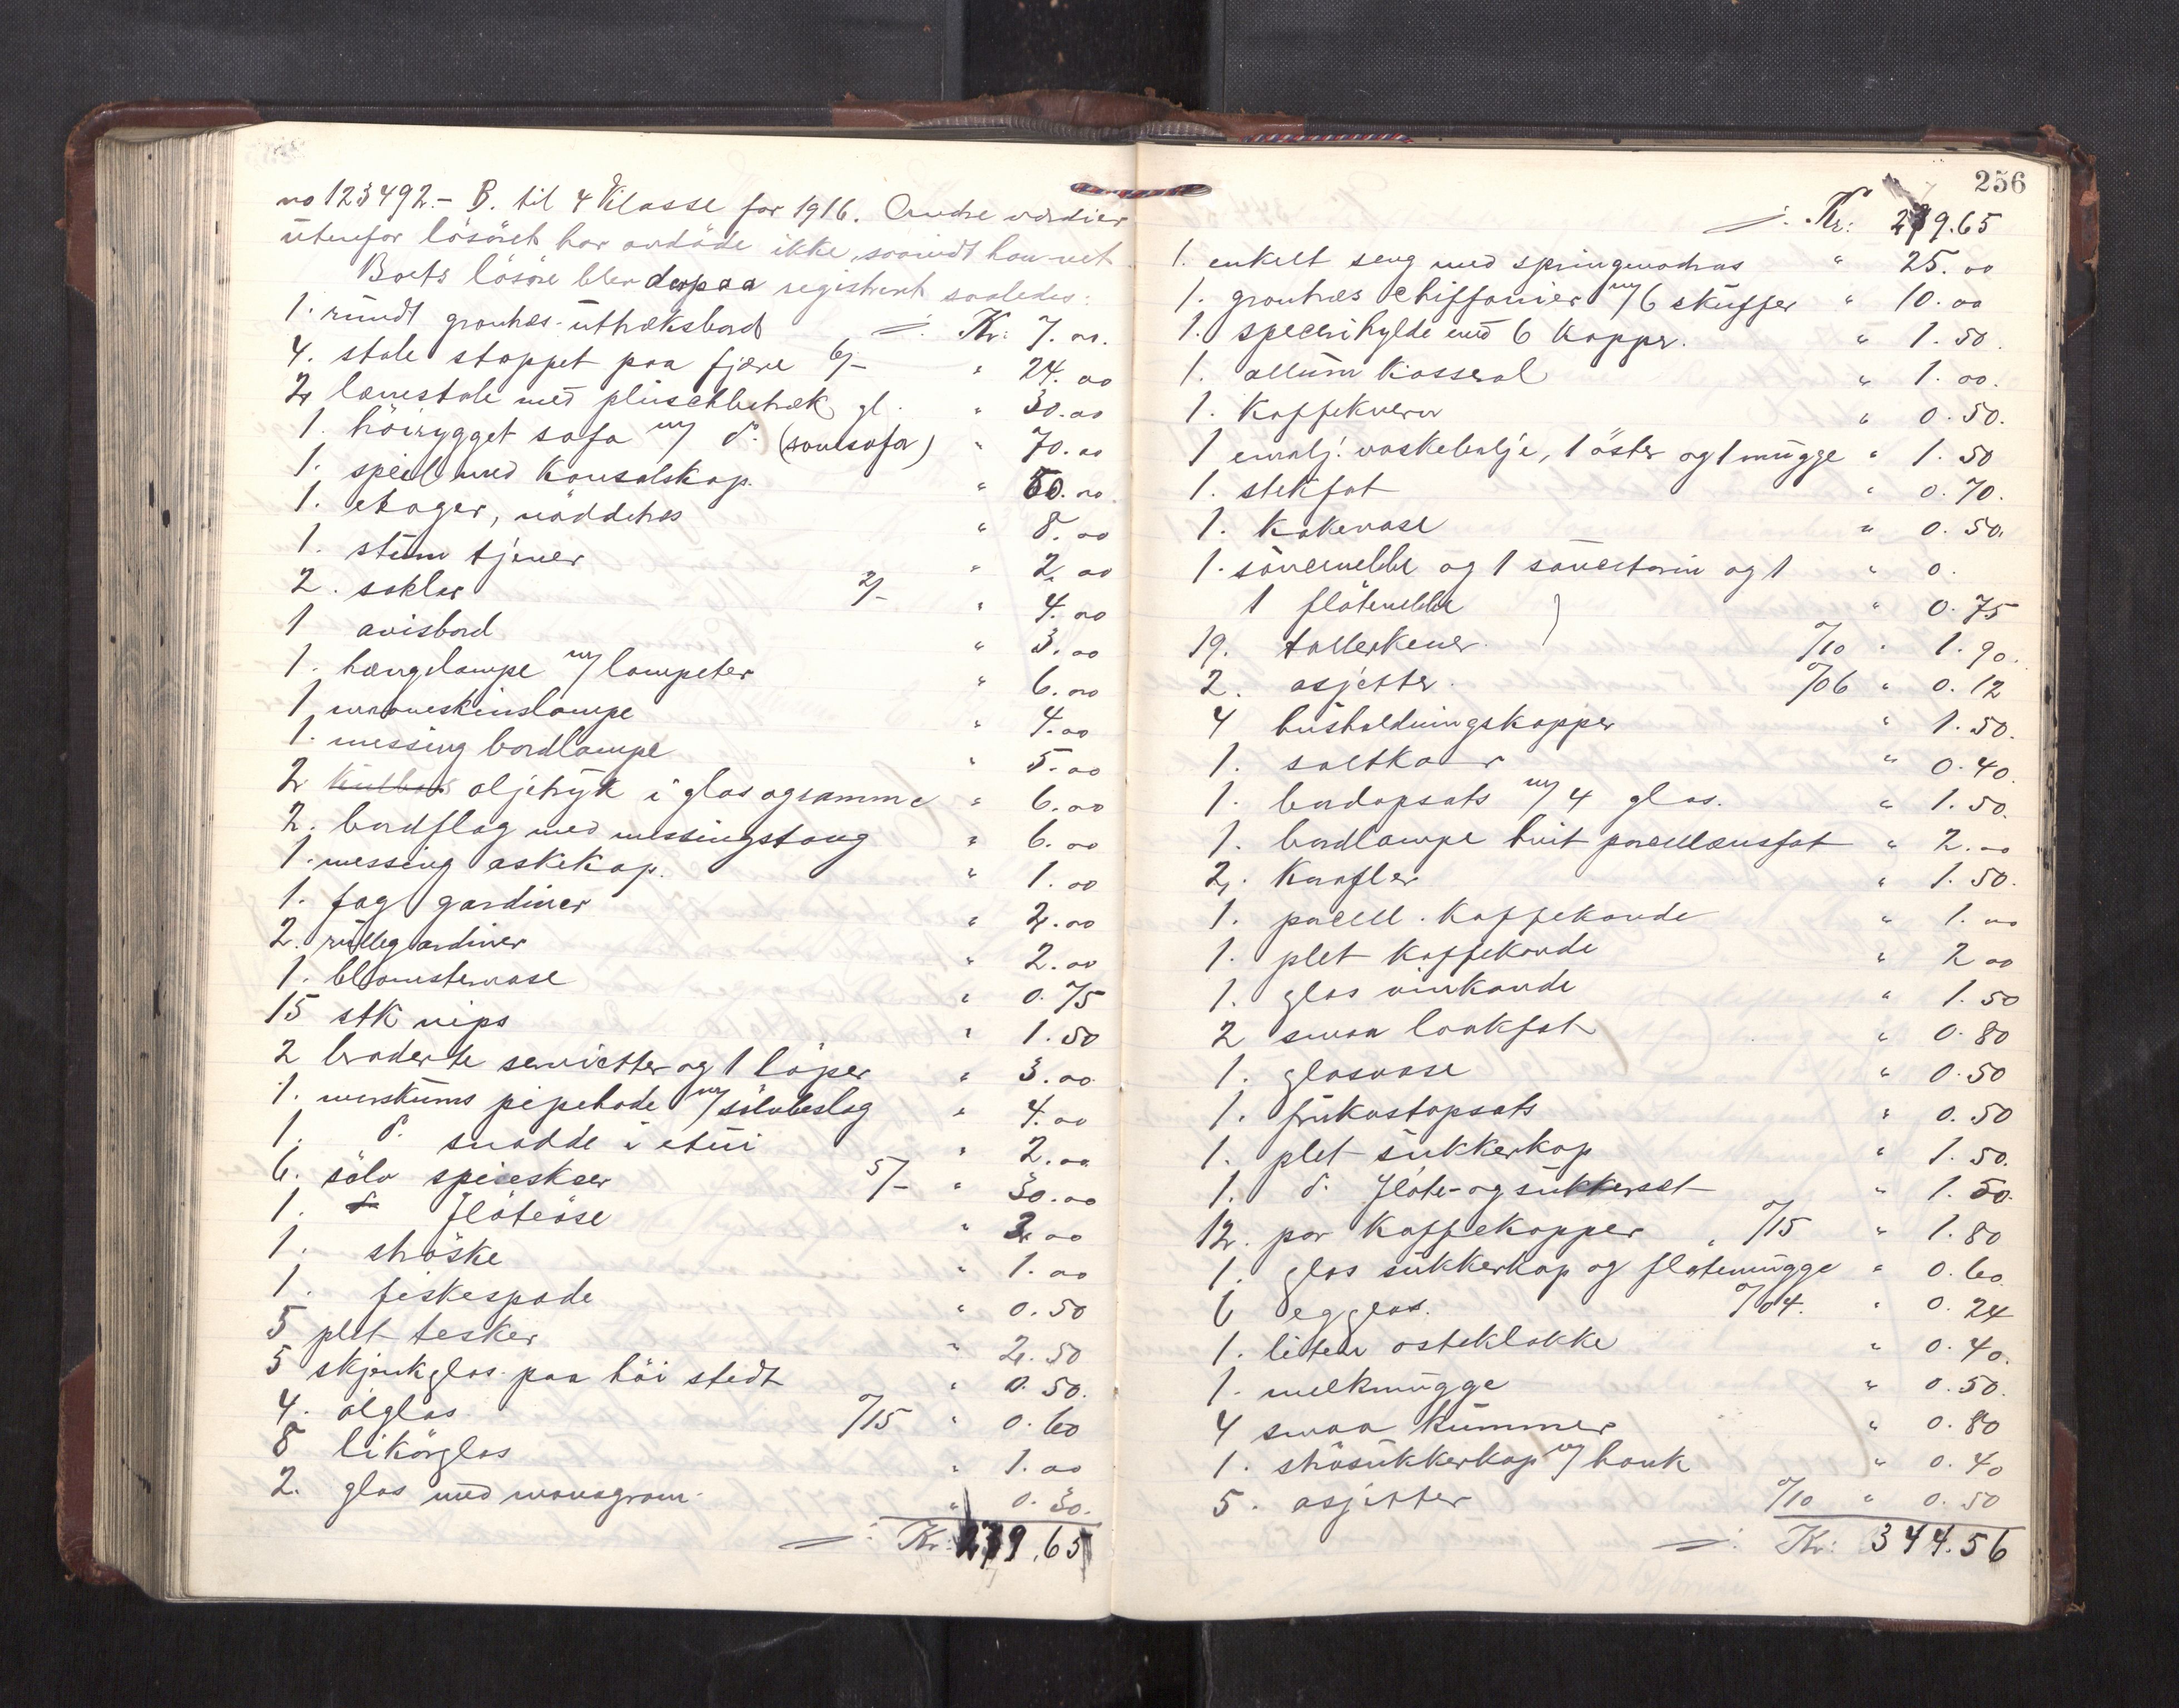 no 123492.- B. til 4 Klasse for 1916. Andre værdier
utenfor lösöret har avdöde ikke, saavidt hun vet.
Boets lösöre blev derpaa registrert saaledes:
1. rundt grantræs-uttræksbord = : Kr: 7.00.
4. stole stoppet paa fjære 6/- " 24.00
2 lænestole med plüschbetræk gl. " 30.00
1. höirygget sofa m/ do. (sovesofa) " 70.00
1. speil med Konsolskap. " 50.00
1. etager, nöddetræs " 8.00
1. stum tjener " 2.00
2. sokler 2/- " 4.00
1 avisbord " 3.00
1. hængelampe m/ lampeter " 6.00
1 maaneskinslampe " 4.00
1. messing bordlampe " 5.00
2 oljetryk i glas og ramme " 6.00
2. bordflag med messingstang " 6.00
1. messing askekop. " 1.00
1. fag gardiner " 2.00
2. rullegardiner " 2.00
1. blomstervase " 0.75
15 stk nips " 1.50
2 broderte servietter og 1 löper " 3.00
1. merskums pipehode m/ sölvbeslag " 4.00
1. do. snadde i etui " 2.00
6. sölv spiseskeer 5/- " 30.00
1. do flöteöse " 2.00
1. ströske " 1.00
1. fiskespade " 0.50
5 plet tesker " 2.50
5 skjenkglas paa höi stedt " 0.50.
4. ölglas. 0/15 " 0.60
8 likörglas " 1.00
2. glas med monogram " 0.30.
= : Kr: 279.65
256
= : Kr: 279.65
1. enkelt seng med springmadras " 25.00
1. grantræs Chiffonier m/ 6 skuffer " 10.00
1. specerihylde med 6 Kopper. " 1.50.
1. allum Kasserol " 1.00.
1. Kaffekvern " 0.50.
1 emalj. vaskebalje, 1 öster og 1 mugge " 1.50
1. stekfat " 0.70.
1. Kakevase " 0.50.
1. sauenebbe og 1 saueterin og 1 " 0.
1 flötenebbe " 0.75
19. tallerkener. 0/10 " 1.90.
2. asjetter. 0/06 " 0.12
4 husholdningskopper " 1.50.
1. saltkar " 0.40.
1. bordopsats m/ 4 glas. " 1.50.
1. bordlampe hvit porcellænsfot " 2.00
2. Knafler " 1.50.
1. porcell. Kaffekande " 1.00
1. plet Kaffekande " 2 00
1. glas vinkande " 1.50
2 smaa lankfat " 0.80
1. glasvase " 0.50
1. frukostopsats " 0.50
1. plet sukkerkop " 1.50.
1. do. flöte- og sukkerset " 1.50.
12. par Kaffekopper 0/15 " 1.80
1. glas sukkerkop og flötemugge " 0.60.
6 egglas. 0/04. " 0.24
1. liten osteklokke " 0.40.
1. melkmugge " 0.50.
4 smaa Kummer " 0.80
1. strösukkerkop m/ hank " 0.40
5. asjetter 0/10 " 0.50
= : Kr: 344.56